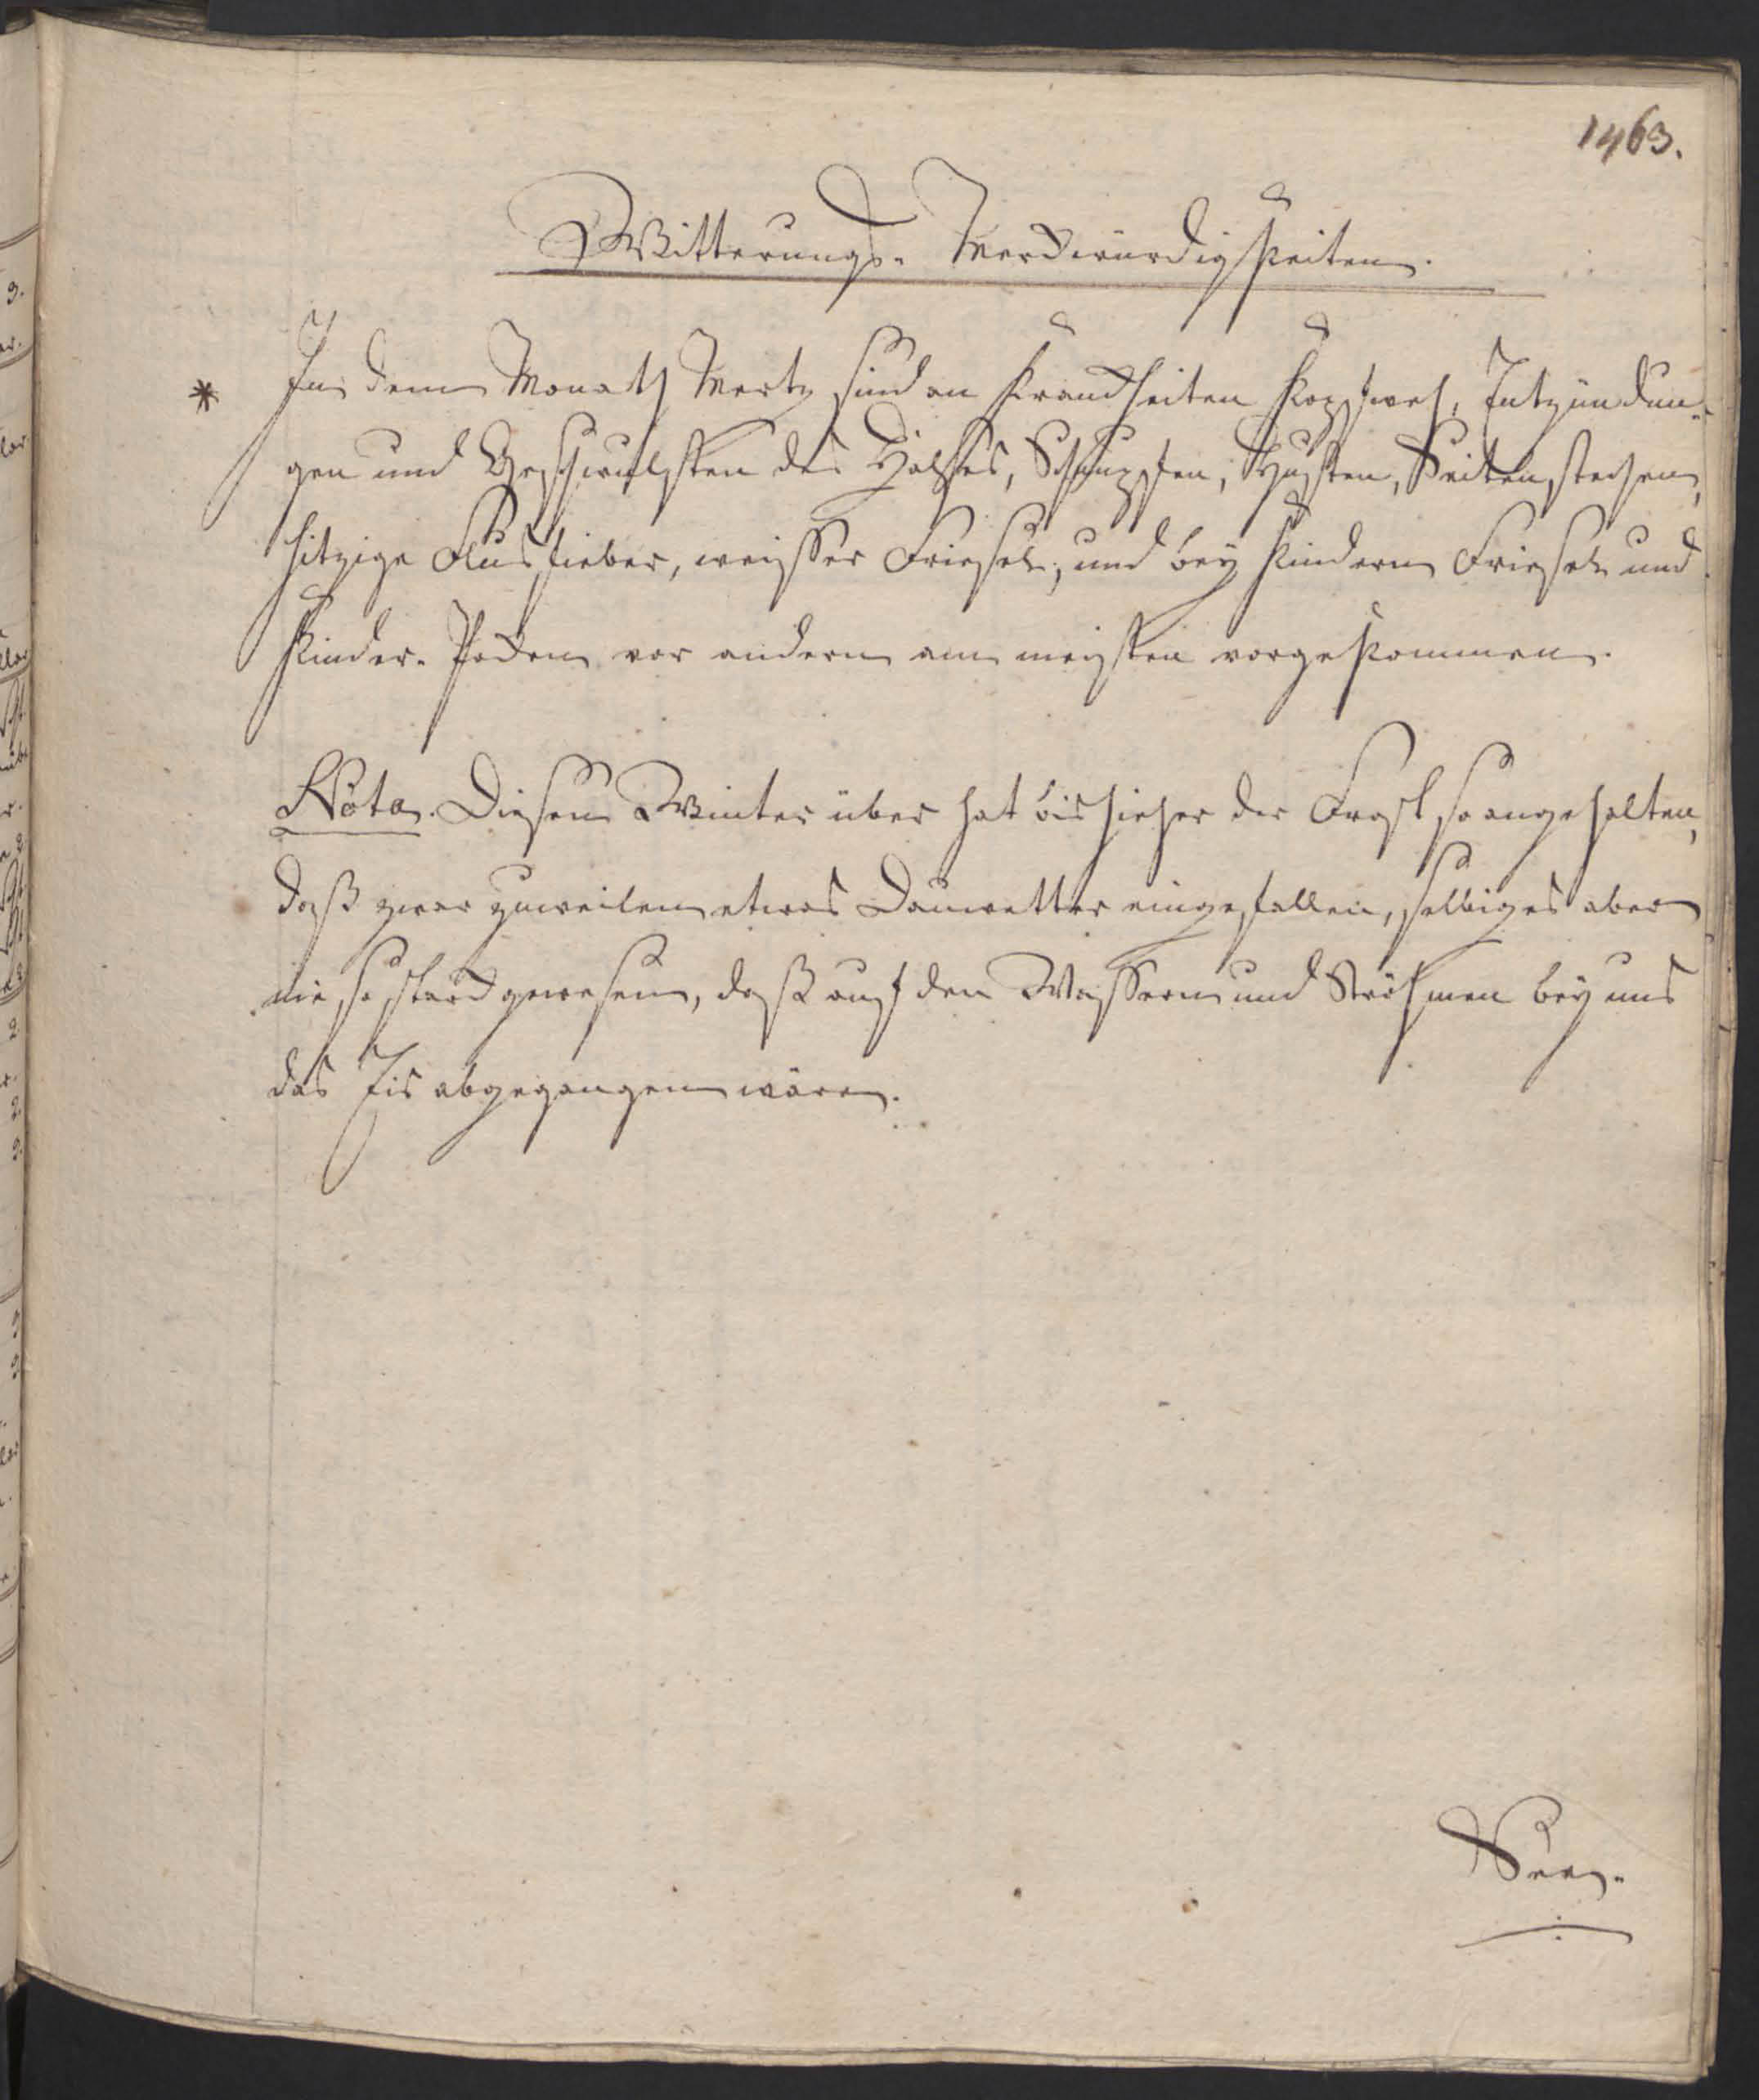 1463.
Witterungs-Merckwürdigkeiten.
* In dem Monath Mertz sind an Kranckheiten Kopfweh, Entzündun-
gen und Geschwulsten des Halses, Schnupfen, Husten, Seitenstechen,
hitzige Flusfieber, weisser Friesel, und bey Kindern Friesel und
Kinder-Pocken vor andern am meisten vorgekommen.
Nota. Diesen Winter über hat bis hieher der Frost so angehalten,
daß zwar zuweilen etwas Dauwetter eingefallen, selbiges aber
nie so starck gewesen, daß auf den Wassern und Ströhmen bey uns
das Eis abgegangen wäre.